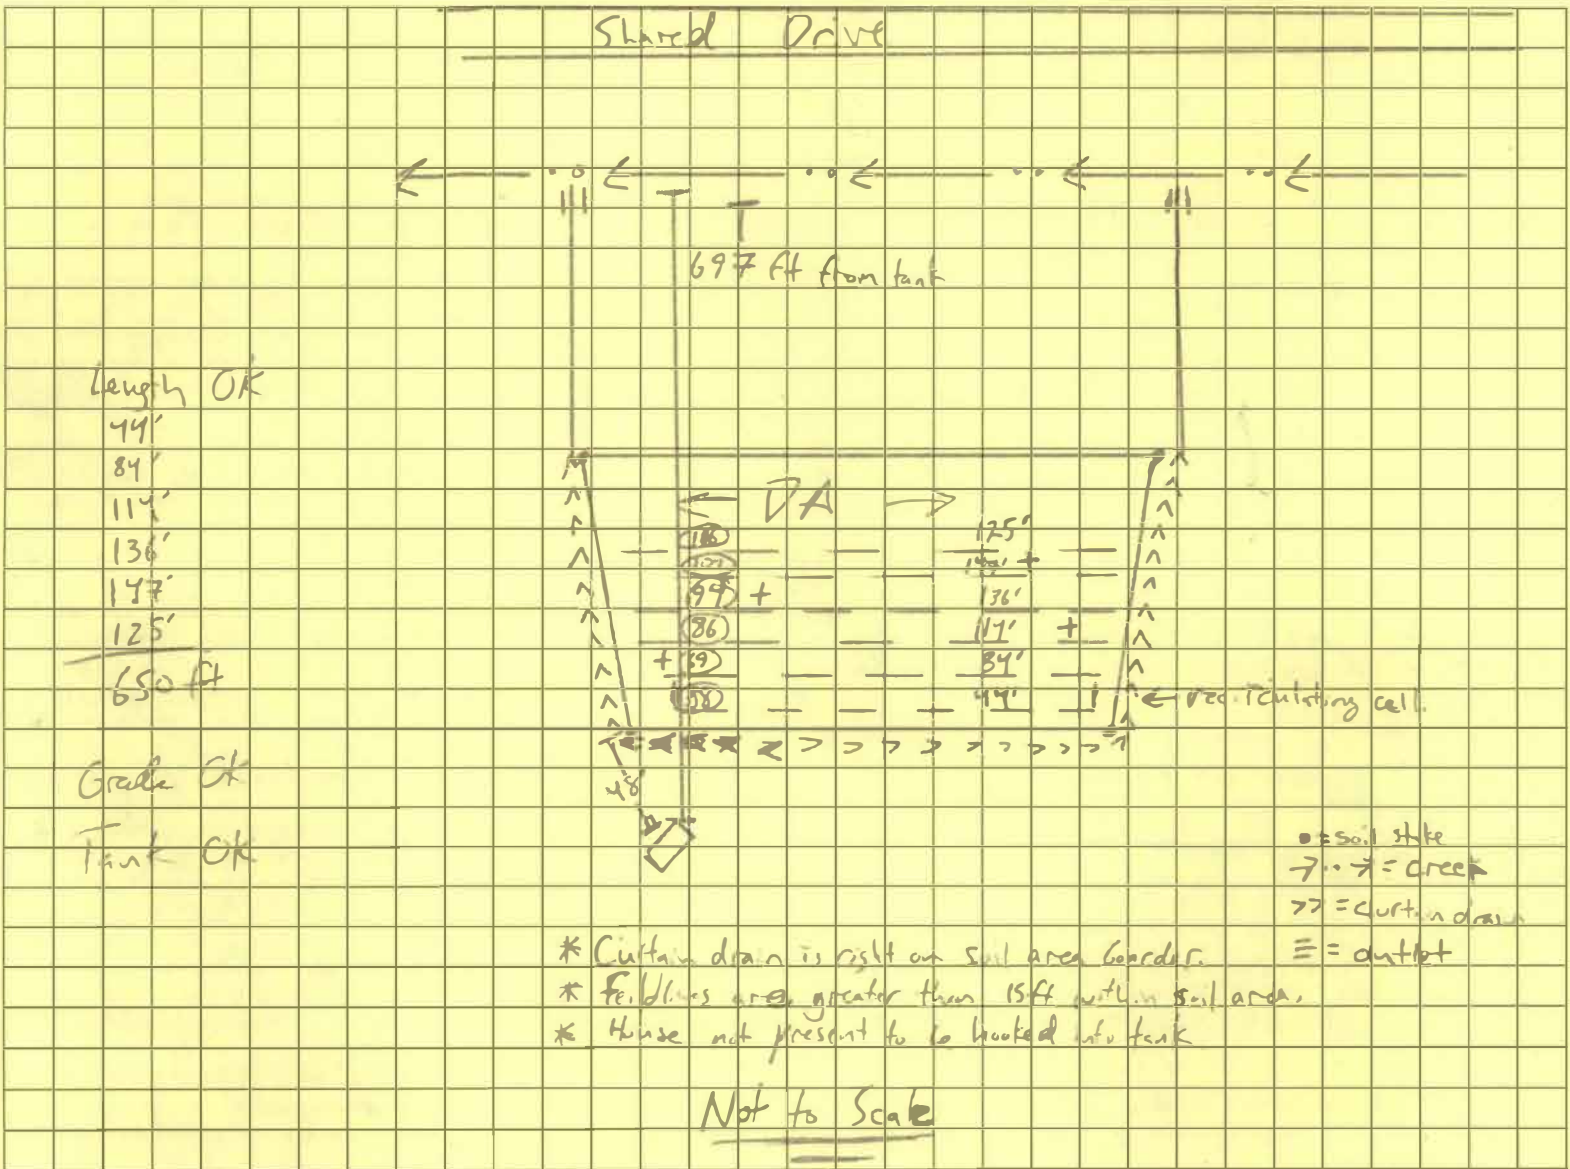 Shared Drive
697 ft from tank
Length OK
44'
84'
114'
136'
147'
125'
650 ft
DA
125'
136'
94 +
86
+
84'
58
44'
← recirculating cell
48'
Grade OK
Tank OK
• = soil stke
→··→ = creek
>> = curtain drain
≡ = outlet
* Curtain drain is right on soil area boarder.
* Feildlines are greater than 15ft within soil area.
* House not present to be hooked into tank
Not to Scale